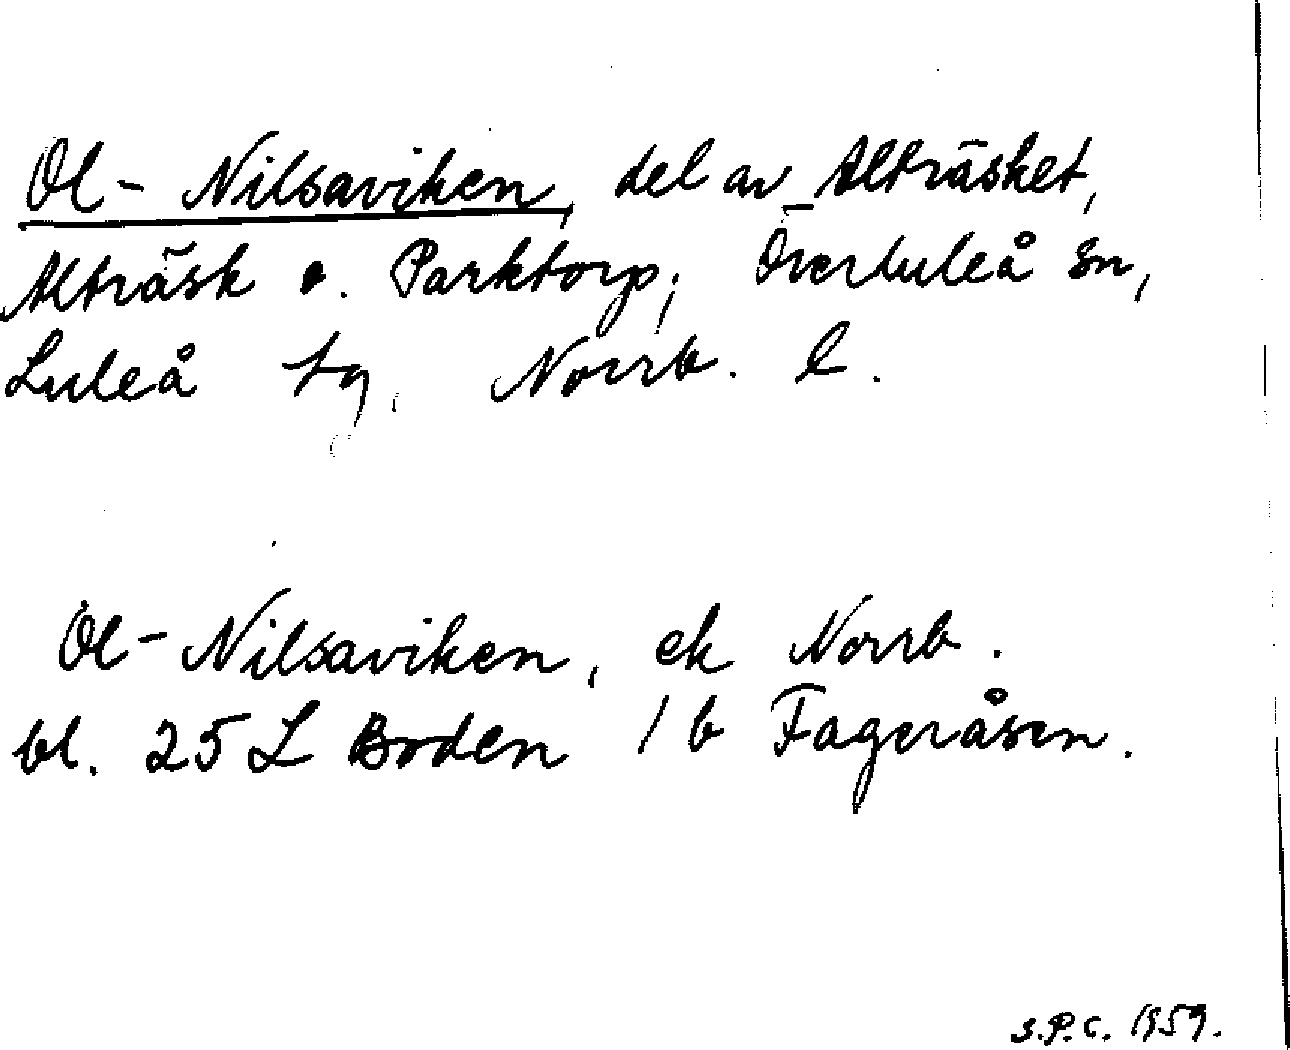 Ol-Nilsaviken, del av Alträsket,
Alträsk o. Parktorp, Överluleå sn,
Luleå tg, Norrb. l.
Ol-Nilsaviken, ek Norrb.
bl. 25 L Boden 1 b Fageråsen.
S.P.C. 1959.